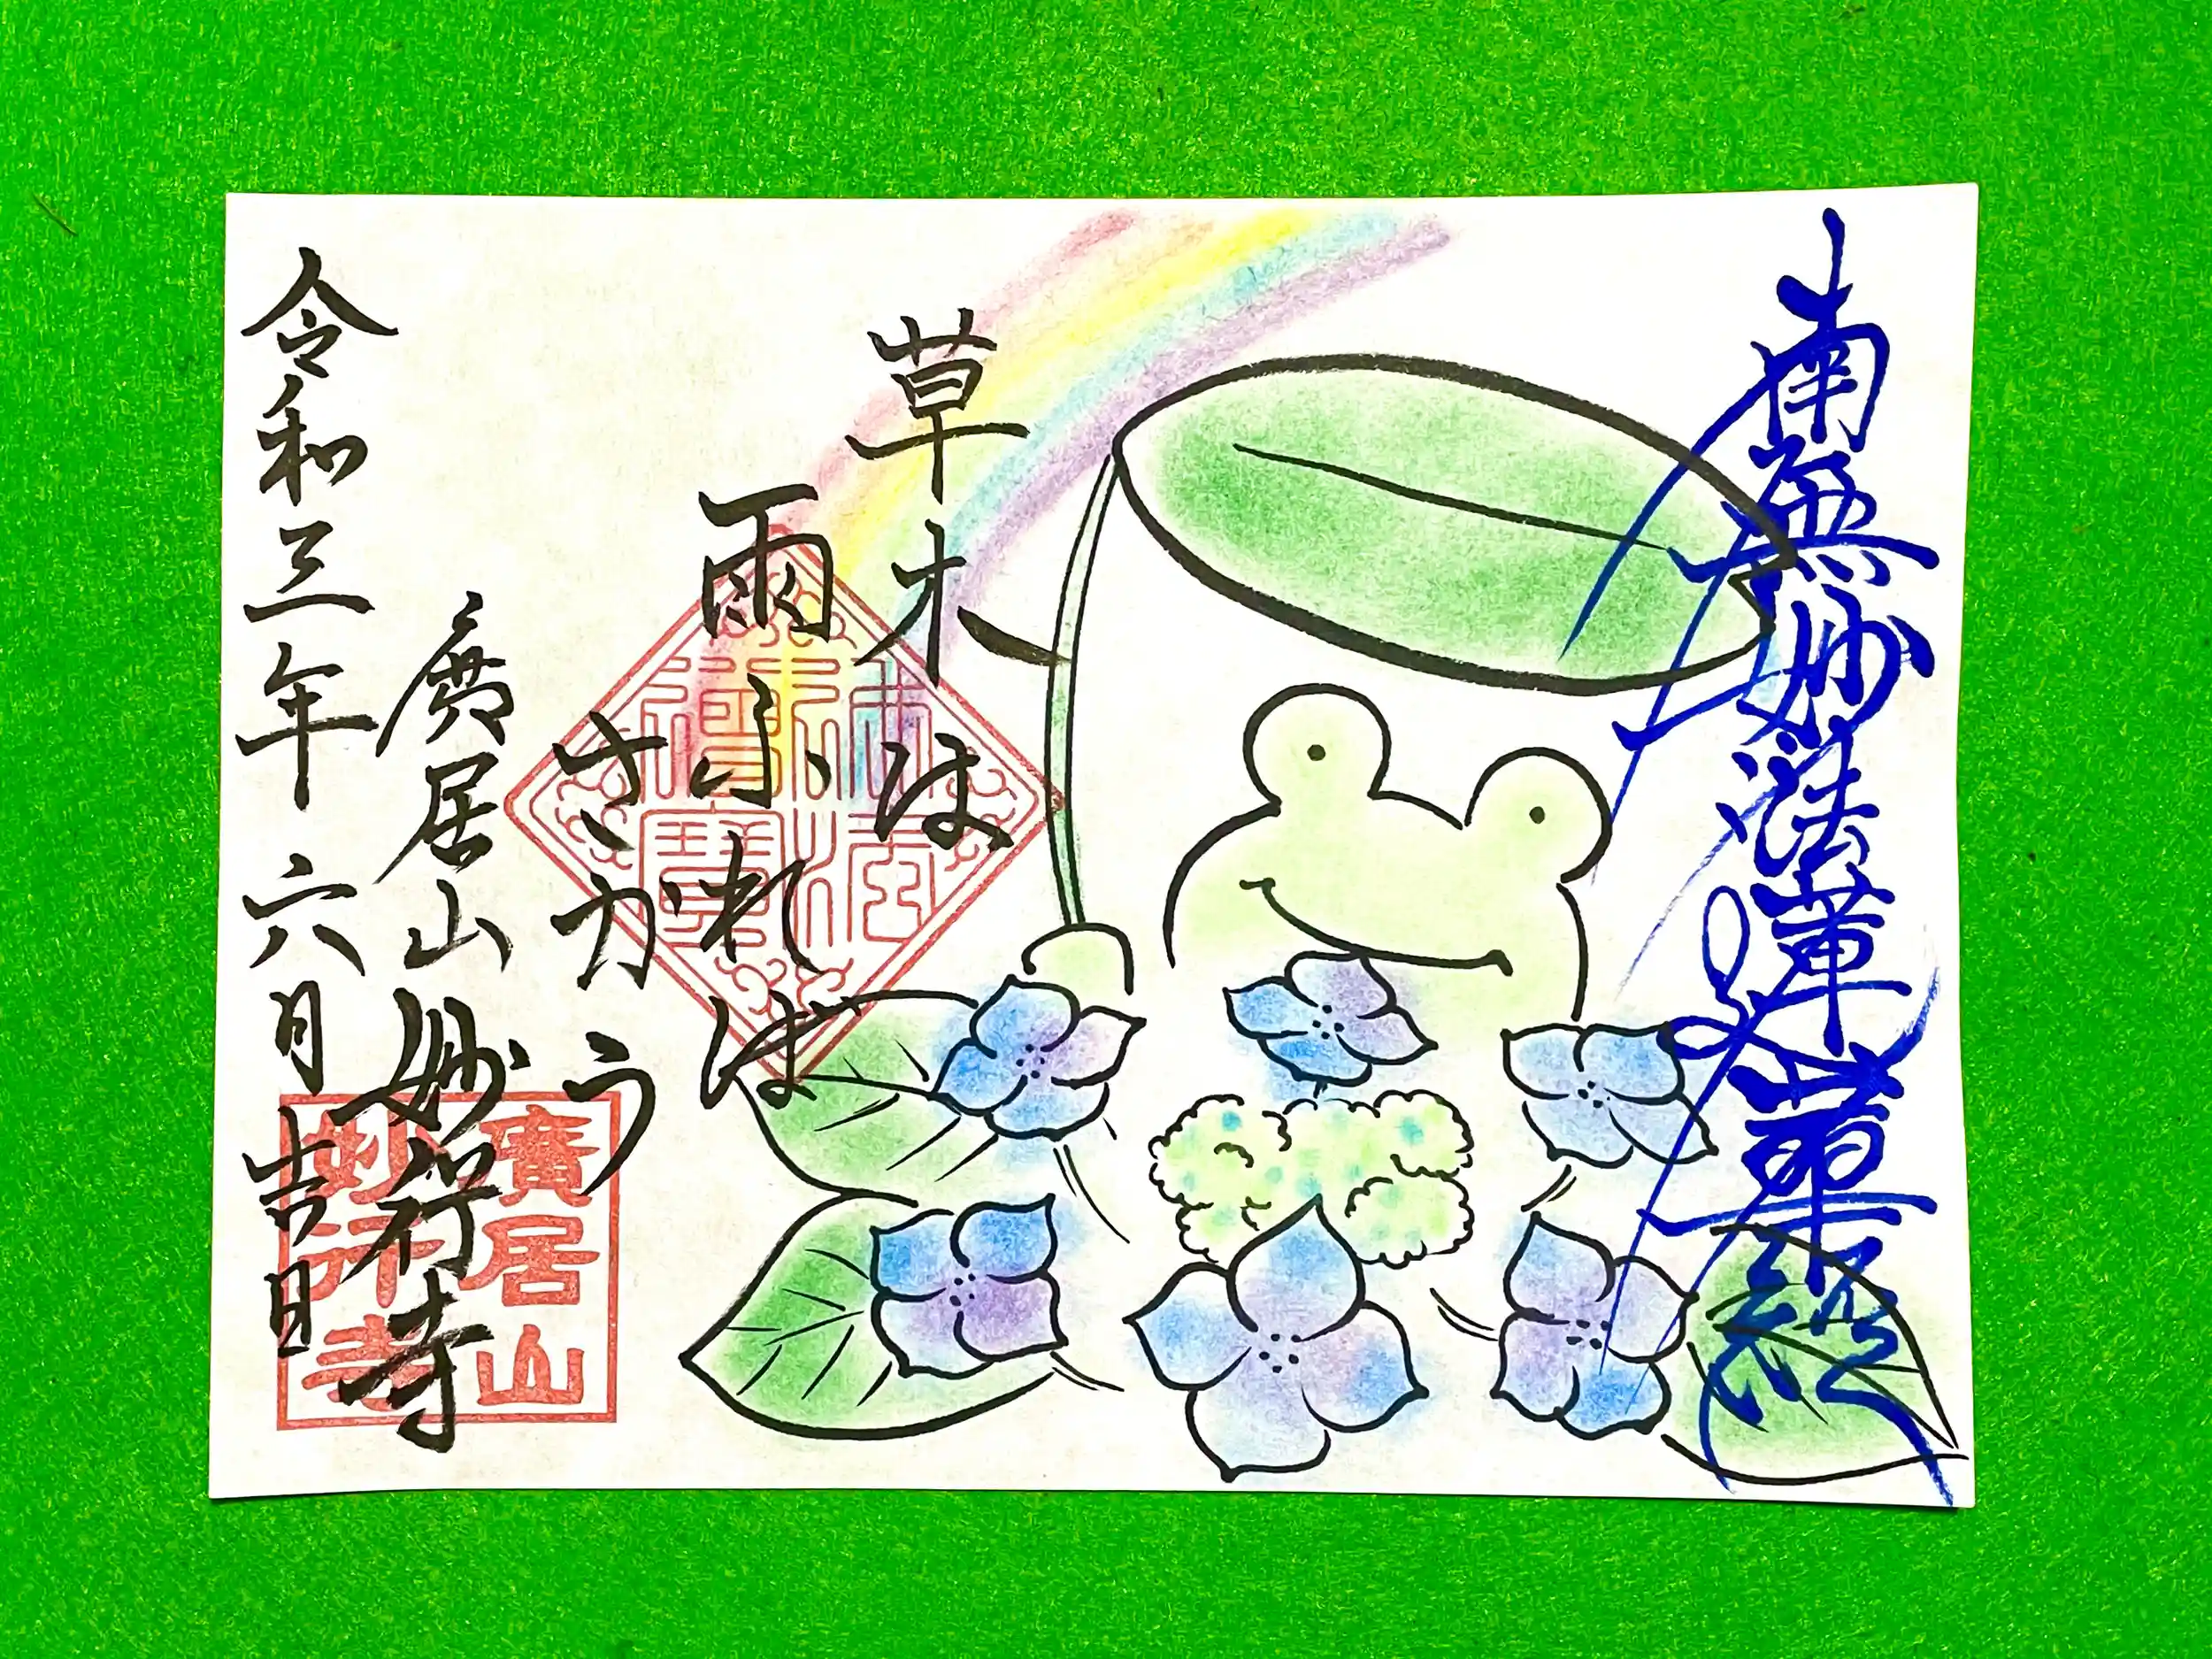 南無妙法蓮華経
草木は
雨ふれば
さかう
廣居山妙行寺
令和三年六月吉日
佛法
僧寶
廣居山
妙行寺